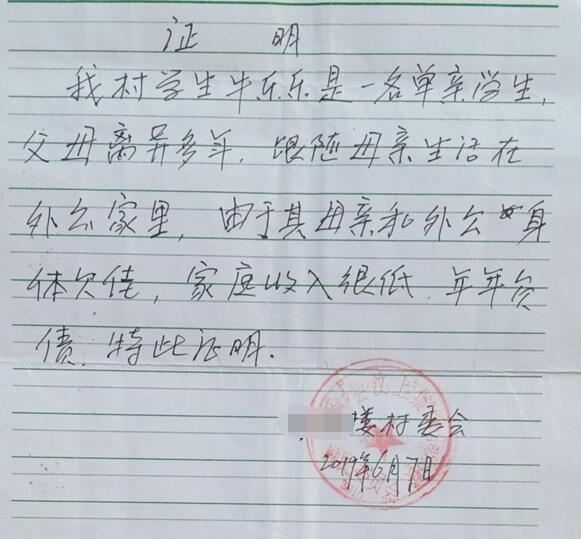 证 明
我村学生牛乐乐是一名单亲学生,
父母离异多年,跟随母亲生活在
外公家里,由于其母亲和外公身
体欠佳,家庭收入很低,年年负
债,特此证明.
楼村委会
2019年6月7日